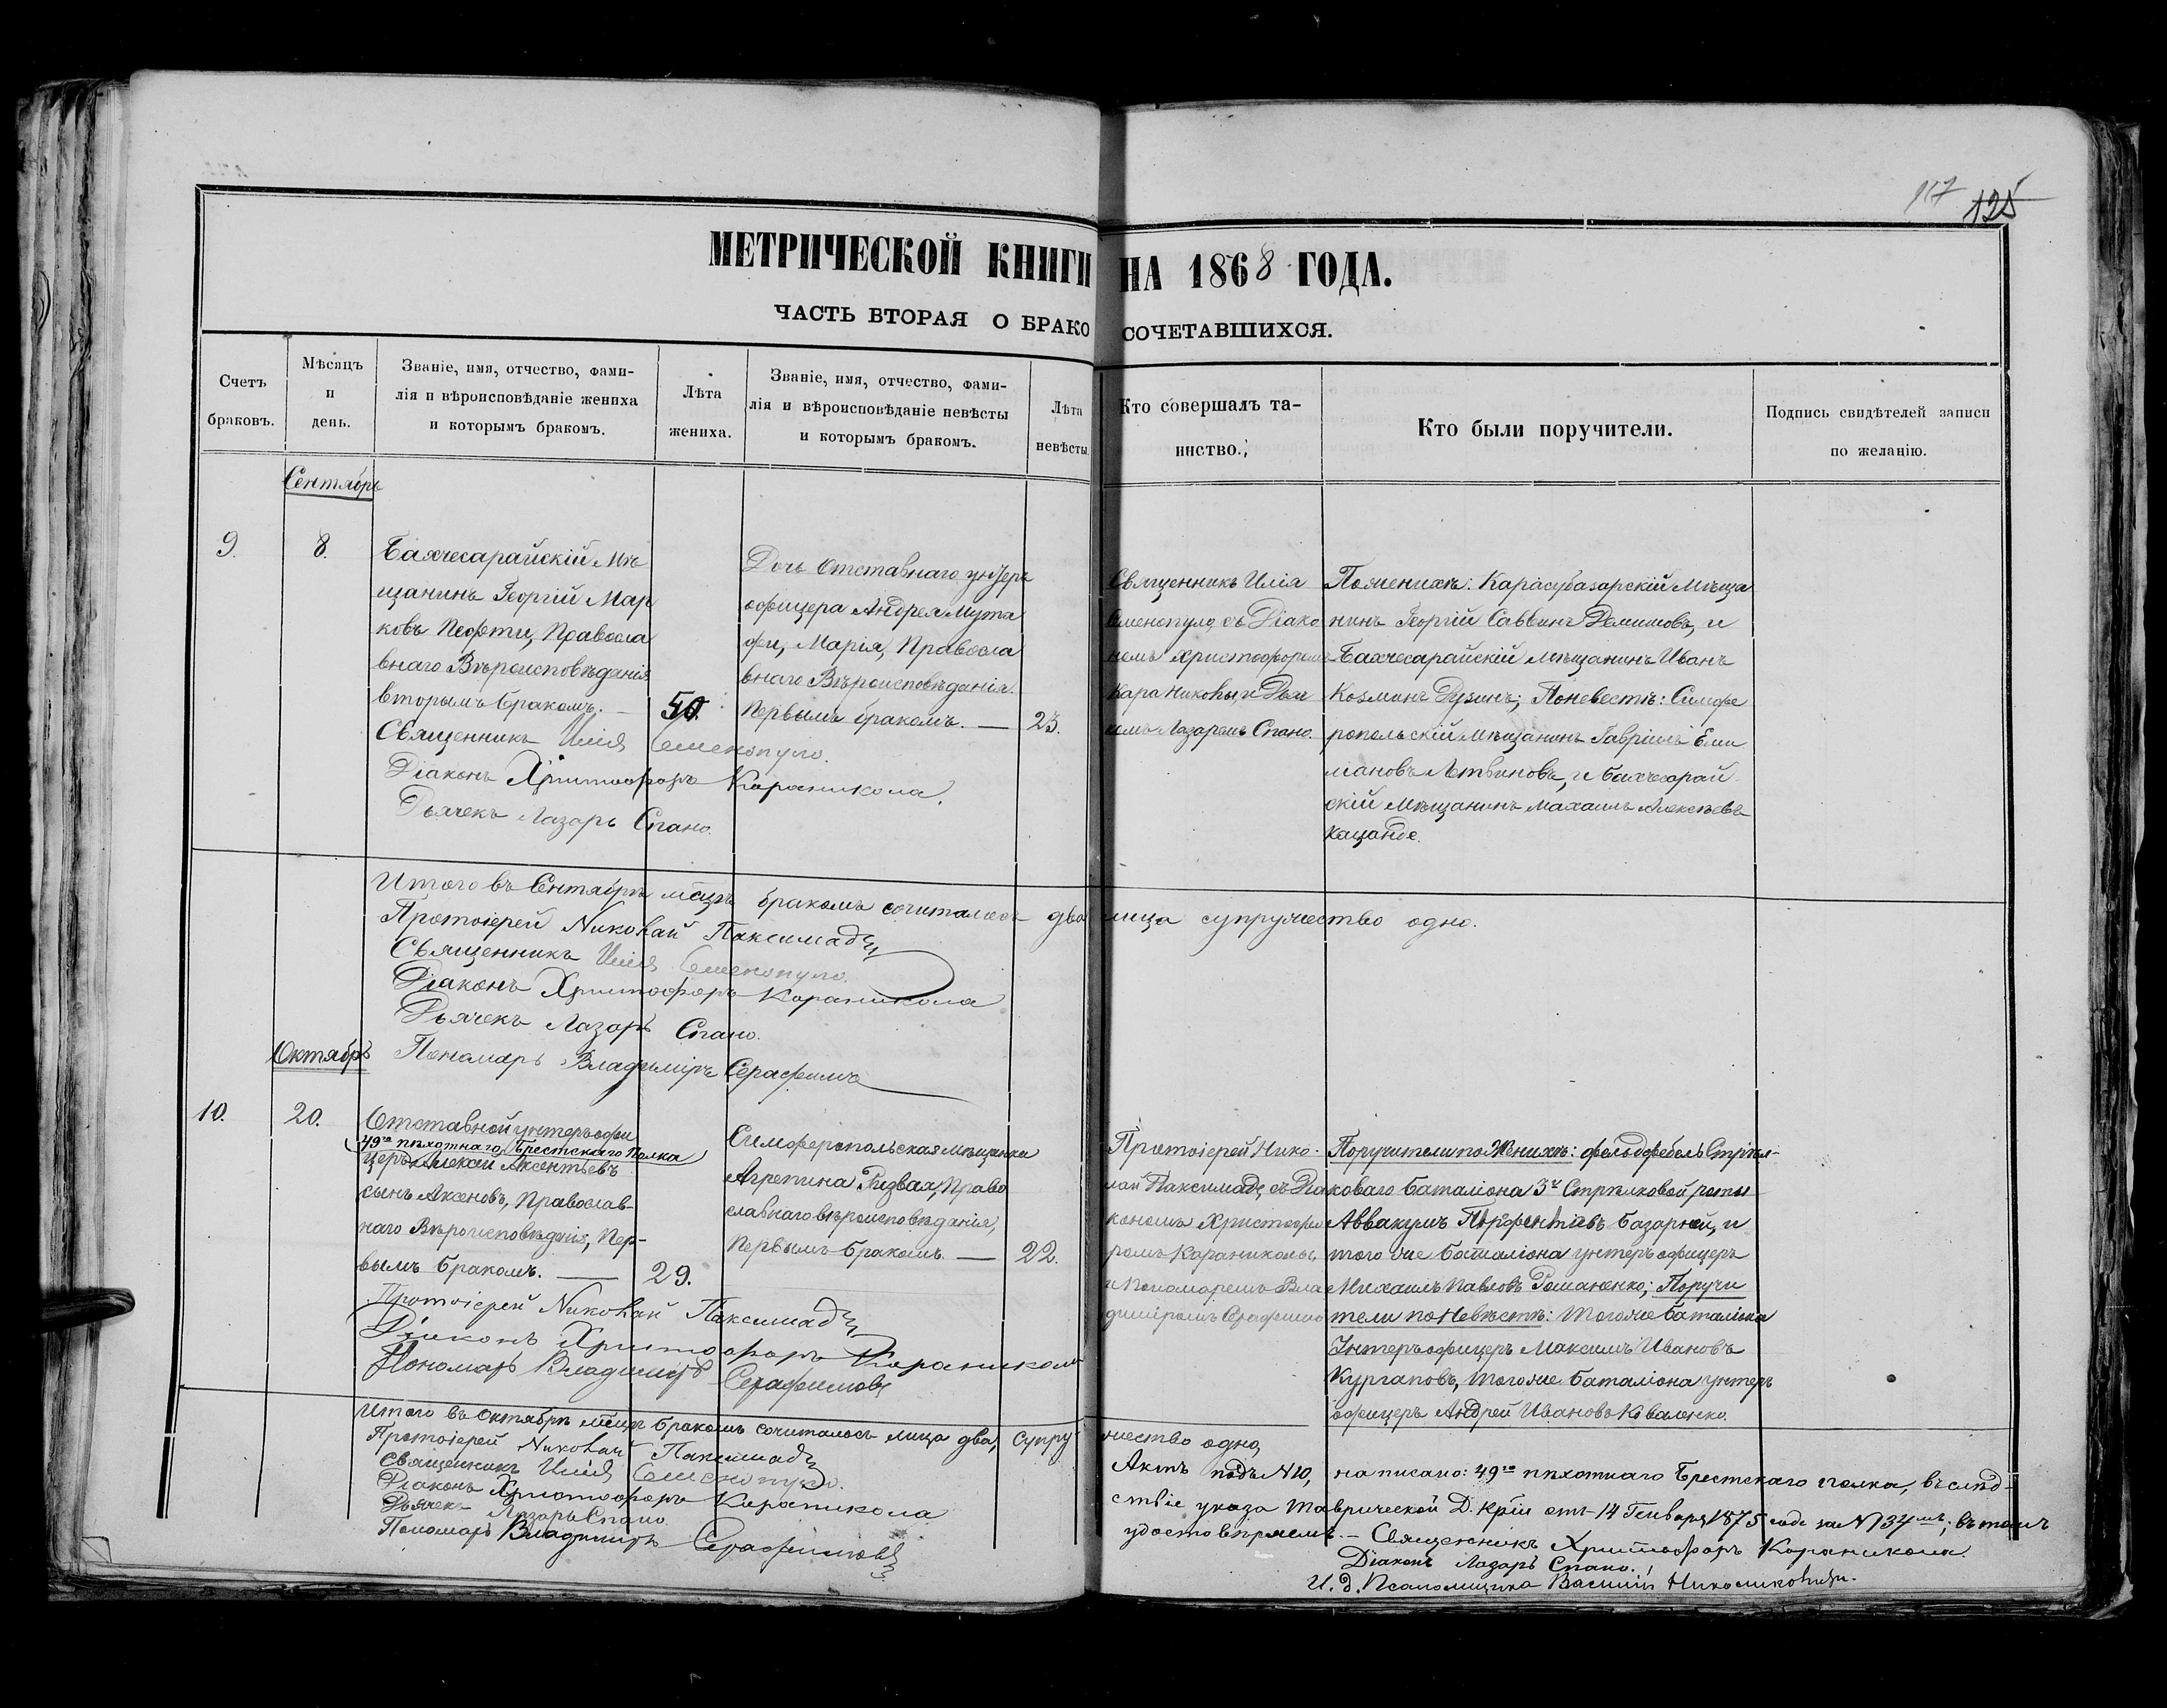 117 125
МЕТРИЧЕСКОЙ КНИГИ НА 1868 ГОДА.
ЧАСТЬ ВТОРАЯ О БРАКОСОЧЕТАВШИХСЯ.
Счетъ браковъ.
Мѣсяцъ и день.
Званіе, имя, отчество, фами-
лія и вѣроисповѣданіе жениха
и которымъ бракомъ.
Лѣта жениха.
Званіе, имя, отчество, фами-
лія и вѣроисповѣданіе невѣсты
и которымъ бракомъ.
Лѣта невѣсты.
Кто совершалъ та-
инство.
Кто были поручители.
Подпись свидѣтелей записи
по желанію.
Сентябрь
9. 8.
Бахчесарайскій Мѣ
щанинъ Георгій Мар
ковъ Пефти, Правосла
внаго Вѣроисповѣданія
вторымъ бракомъ. —
50.
Дочь Отставнаго унтеръ
офицера Андрея Мута
фи, Марія, Правосла
внаго Вѣроисповѣданія.
Первымъ бракомъ. —
23.
Священникъ Илія
Семенопуло, съ Діако
номъ Христофоромъ
Караниколы, и Дьяч
комъ Лазаремъ Спано.
Поженихѣ: Карасубазарскій Мѣща
нинъ Георгій Саввинъ Демишовъ, и
Бахчесарайскій Мѣщанинъ Иванъ
Козминъ Дузинъ; Поневестѣ: Симфе
ропольскій Мѣщанинъ Гавріилъ Ели
мановъ Летвиновъ, и Бахчесарай
скій Мѣщанинъ Махаилъ Алексѣевъ
Кацанде.
Священникъ Илія Семенопуло.
Діаконъ Христофоръ Кораникола.
Дьячекъ Лазарь Спано.
Итого въ Сентябрѣ мѣсяцѣ бракомъ сочиталось два лица супружество одно.
Протоіерей Николай Паксимади
Священникъ Илія Семенопуло.
Діаконъ Христофоръ Кораникола
Дьячекъ Лазарь Спано.
Пономарь Владиміръ Серафимовъ
Октябрь
10. 20.
Отставной унтеръ офи
49го пѣхотнаго Брестскаго Полка
церъ Алексѣй Аксентьевъ
сынъ Аксеновъ, Православ-
наго Вѣроисповѣданія, Пер-
вымъ бракомъ. —
29.
Симферопольская мѣщанка
Агрепина Ризвах, Право
славнаго вѣроисповѣданія,
Первымъ бракомъ. —
22.
Протоіерей Нико-
лай Паксимади, съ Діа
кономъ Христофо
ромъ Караниколы,
и Пономаремъ Вла
диміромъ Серафимо
Поручители по Женихѣ: фельдфебель Стрѣл-
коваго баталіона 3й Стрѣлковой роты
Аввакумъ Порфентіевъ Базарной, и
того же баталіона унтеръ офицеръ
Михаилъ Павловъ Романенко; Поручи
тели по Невѣстѣ: Того же баталіона
Унтеръ офицеръ Максимъ Ивановъ
Кургановъ, того же баталіона унтеръ
офицеръ Андрей Ивановъ Коваленко.
Протоіерей Николай Паксимади
Діаконъ Христофоръ Кораникола
Пономарь Владиміръ Серафимовъ
Итого въ Октябрѣ мѣсяцѣ бракомъ сочиталось лица два, супружество одно,
Протоіерей Николай Паксимади
Священникъ Илія Семенопуло.
Діаконъ Христофоръ Кораникола
Дьячекъ Лазарь Спано.
Пономарь Владиміръ Серафимовъ
Актъ подъ N 10, написано: 49го пѣхотнаго Брестскаго полка, вслѣд-
ствіе указа Таврической Д. Кріи отъ 14 Генваря 1875 года за N 34мъ; въ томъ
удостовѣряемъ. – Священникъ Христофоръ Кораникола.
Діаконъ Лазарь Спано.
И. д. Псаломщика Василій